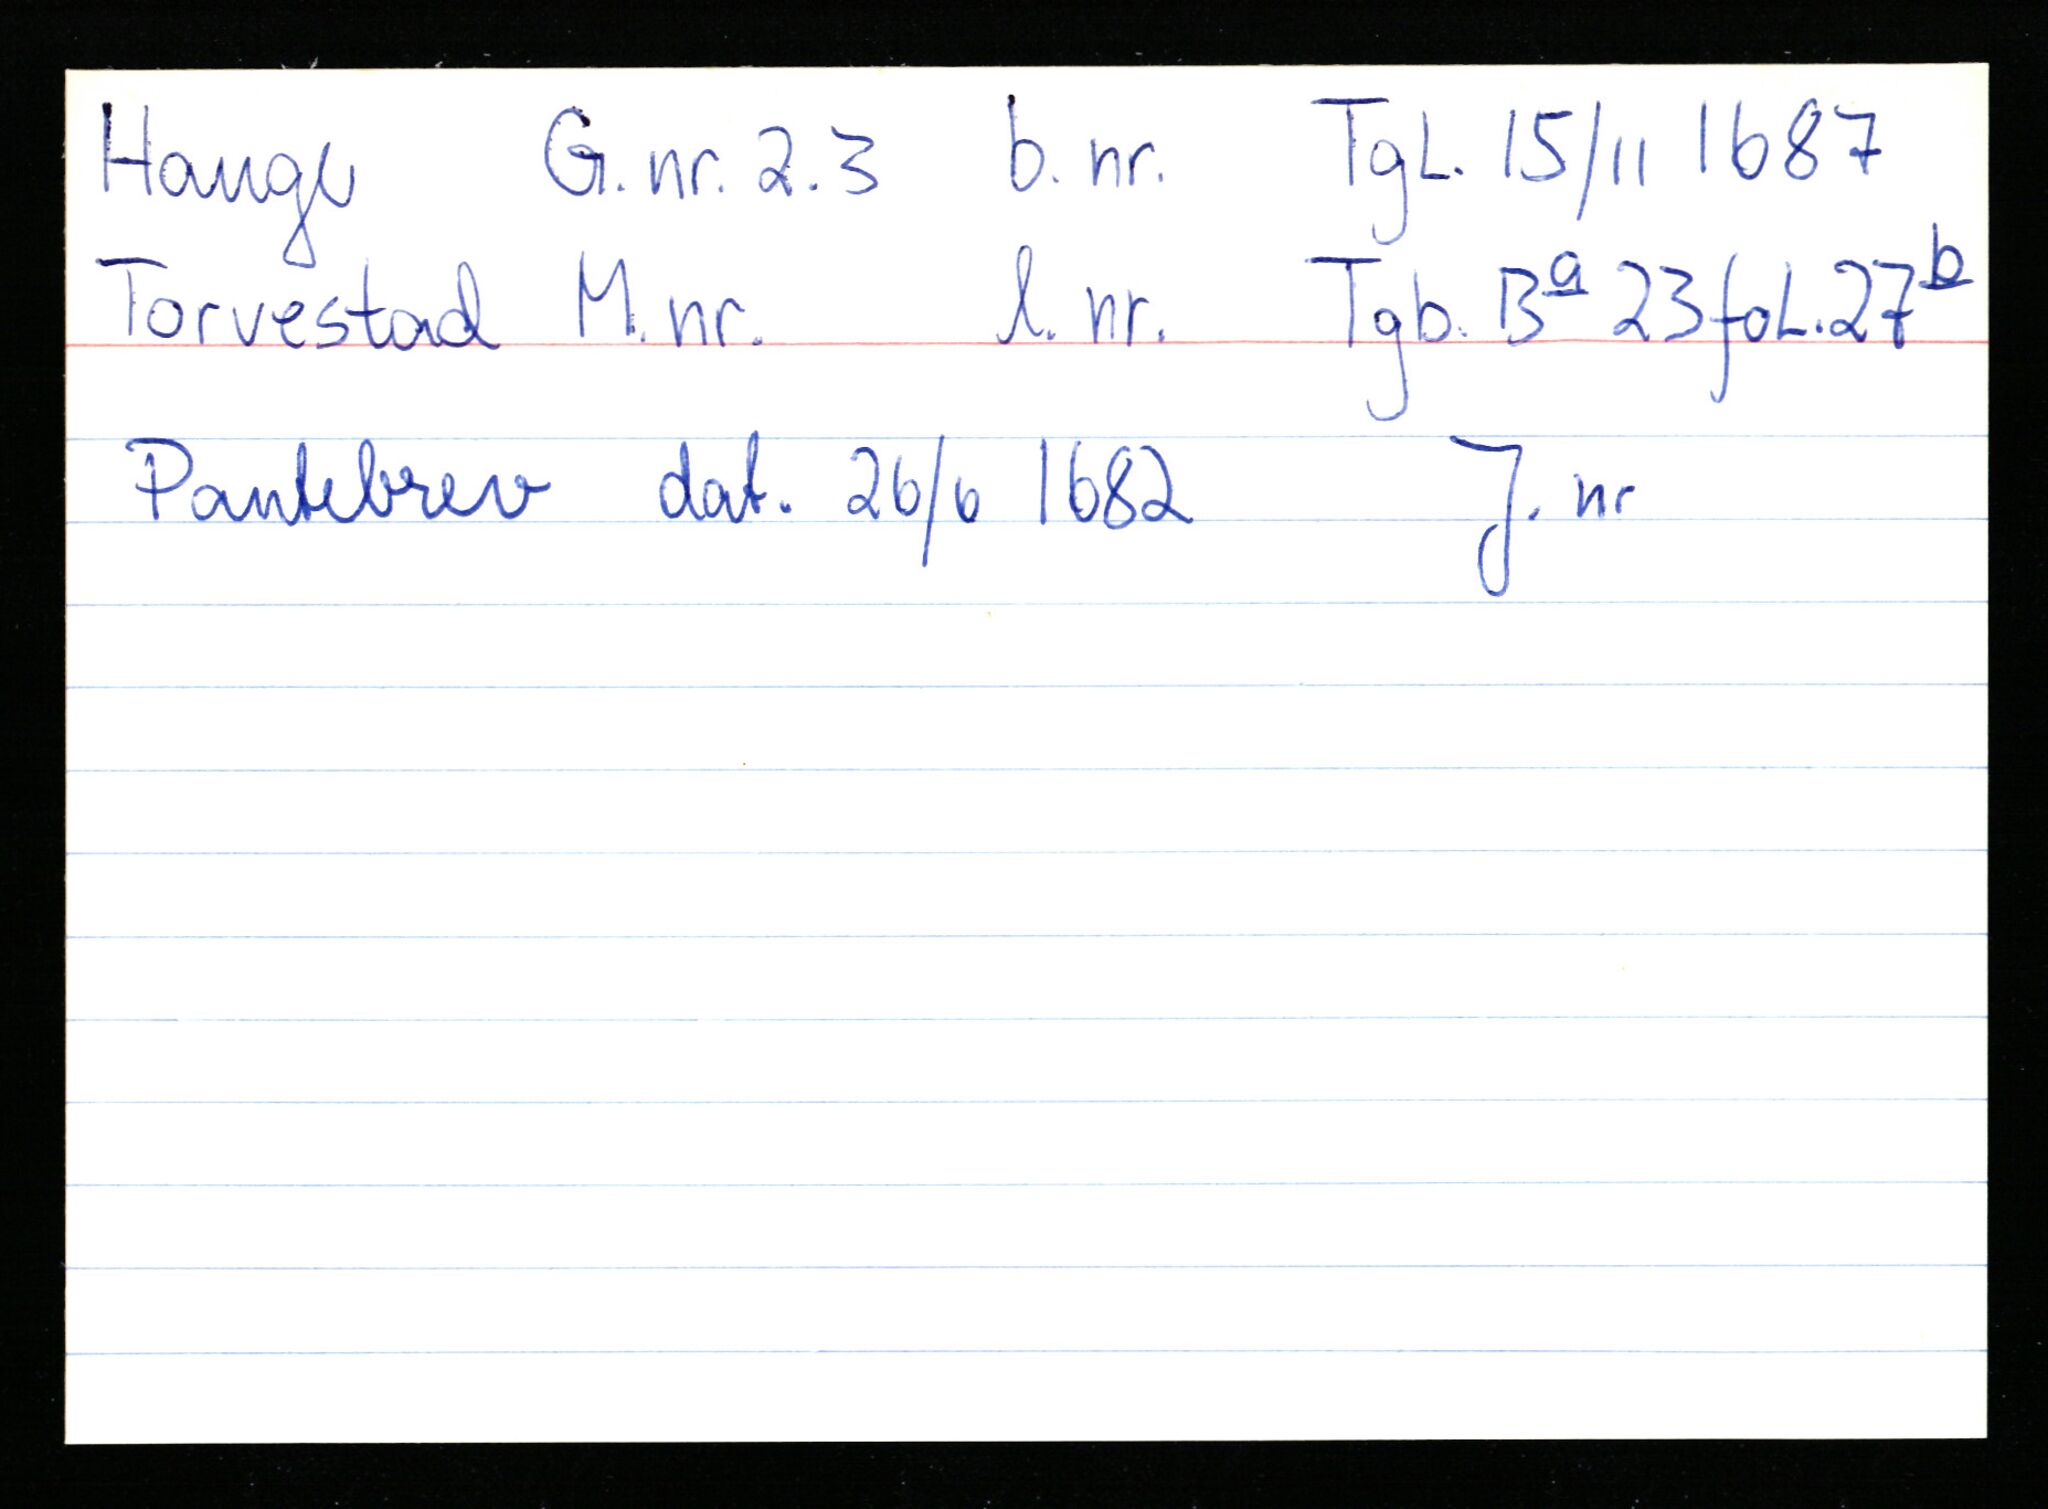 Hauge G.nr. 2.3 b.nr. TgL. 15/11 1687
Torvestad M.nr. l.nr. Tgb. Bª 23 foL. 27ᵇ
Pantebrev dat. 26/6 1682 J. nr